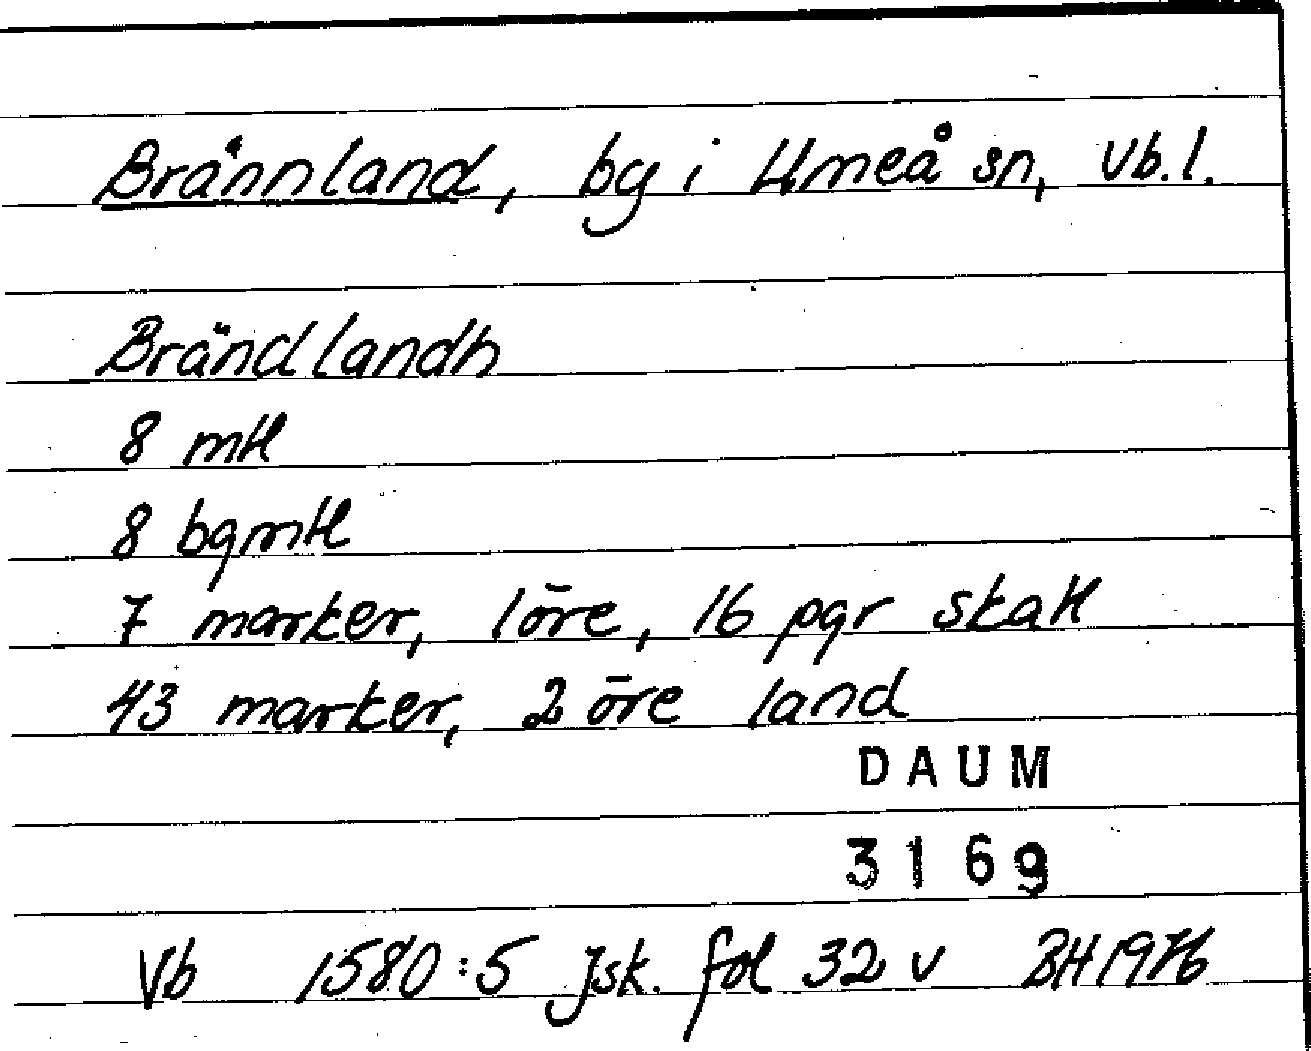 Brännland, by i Umeå sn, Vb.l.
Brändlandh
8 mtl
8 bgmtl
7 marker, 1 öre, 16 pgr skatt
43 marker, 2 öre land
DAUM
3169
Vb 1580:5 Jsk. fol 32 v BH 1976